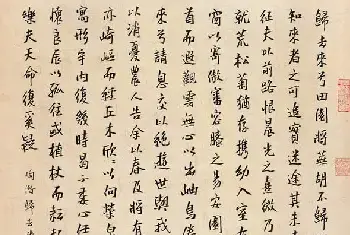 歸去來兮田園將蕪胡不歸
知來者之可追實迷途其未
征夫以前路恨晨光之熹微乃
就荒松菊猶存攜幼入室有
窗以寄傲審容膝之易安園
首而遐觀雲無心以出岫鳥倦
來兮請息交以絕遊世與我
以消憂農人告余以春及將有
亦崎嶇而經丘木欣欣以向榮
寓形宇內復幾時曷不委心任
懷良辰以孤往或植杖而耘
樂夫天命復奚疑 陶潛歸去